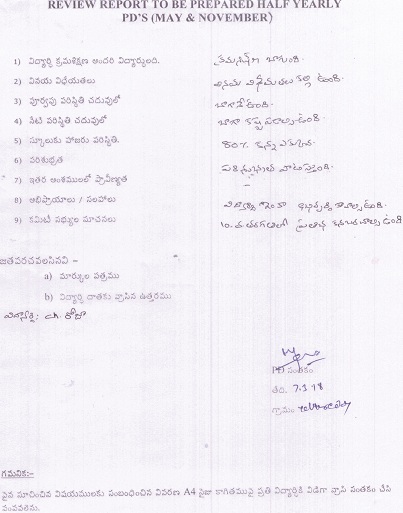 REVIEW REPORT TO BE PREPARED HALF YEARLY
PD'S (MAY & NOVEMBER)
1) విద్యార్థి క్రమశిక్షణ అందరి విద్యార్థులది. క్రమశిక్షణ బాగుంది.
2) వినయ విధేయతలు వినయ విధేయతలు కల్గి ఉంది.
3) పూర్వపు పరిస్థితి చదువులో బాగానే ఉంది.
4) నేటి పరిస్థితి చదువులో బాగా కష్ట పడాల్సి ఉంది.
5) స్కూలుకు హాజరు పరిస్థితి. 80%
6) పరిశుభ్రత పరిశుభ్రత పాటిస్తుంది.
7) ఇతర అంశములలో ప్రావీణ్యత –
8) అభిప్రాయాలు / సలహాలు ఇంకా అభివృద్ధి కావాల్సి ఉంది.
9) కమిటీ సభ్యుల సూచనలు 10వ తరగతిలో ఉంది
జతపరచవలసినవి –
a) మార్కుల పత్రము
b) విద్యార్థి దాతకు వ్రాసిన ఉత్తరము
విద్యార్థి: ch. రోజా
PD సంతకం
తేది. 7.3.18
గ్రామం
గమనిక:-
పైన సూచించిన విషయములకు సంబంధించిన వివరణ A4 సైజు కాగితముపై ప్రతి విద్యార్థికి విడిగా వ్రాసి సంతకం చేసి
పంపవలెను.